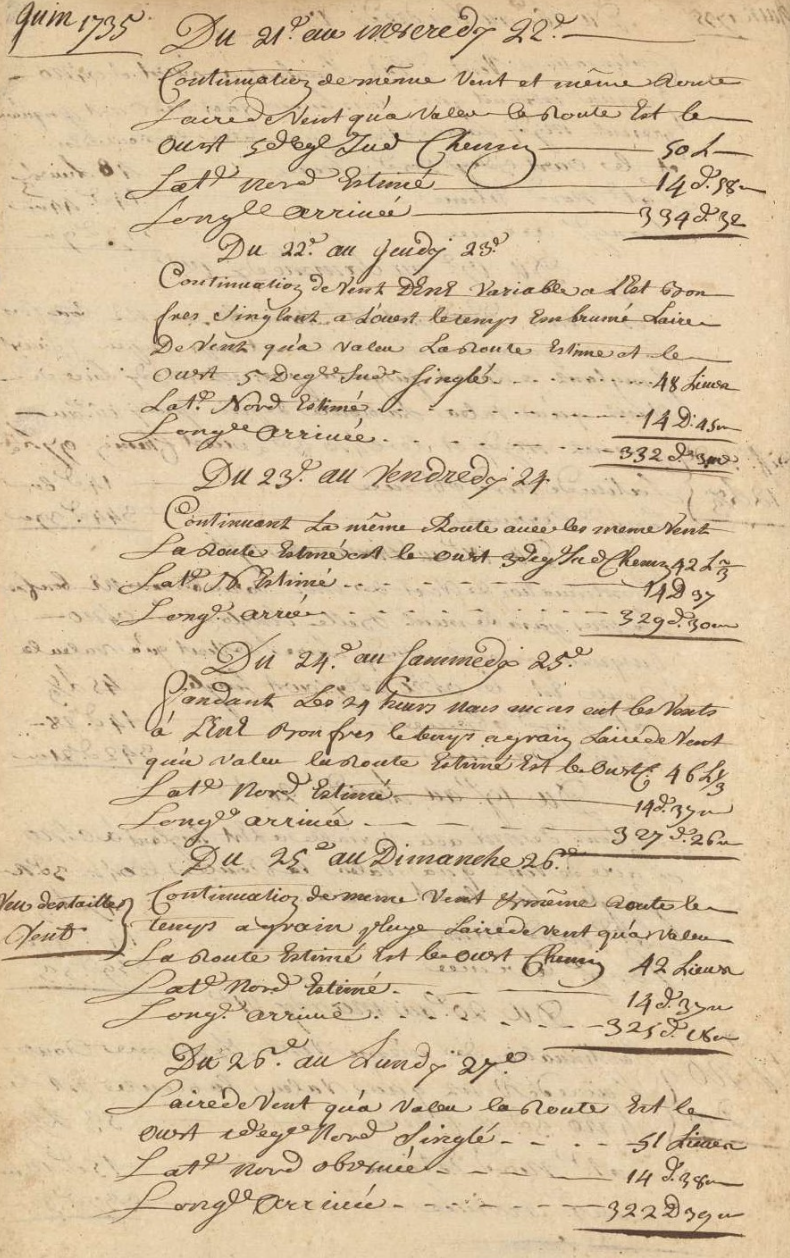 Juin 1735
Du 21.e au mercredy 22.e
Continuation de même Vent et même Route
Lairé de Vent qu'a valeu la Route Est le
Ouest 5 degé Sud Chemin 50 L
Lat.de Nord Estimé 14 d. 58
Long.de arrivée 334 d. 32
Du 22.e au Jeudy 23.e
Continuation de Vent D'ENE Variable a L'Est Bon
fres Singlant a L'ouest le temps Embrumé Laire
De Vent qu'a valeu La Route Estime et le
Ouest 5 Degé Sud Singlé 48 Lieues
Lat.de Nord Estimé 14 D. 45 m
Long.de arrivée 332 d.
Du 23.e au Vendredy 24
Continuant La même Route avec les meme Vent
La Route Estimé est le Ouest 3 deg Sud Chemin 42 L 2/3
Lat.de N Estimé 14 D 37
Long.e arrivé 329 d. 30 m
Du 24.e au Sammedy 25.e
Pendant Les 24 heurs nous avons eut les Vents
à L'ENE Bon fres le temps a grain Lairé de Vent
qu'a valeu la Route Estimé Est le Ouest C 46 L 1/3
Lat.de Nord Estimé 14 d. 37 m
Long.de arrivée 327 d. 26 m
Du 25.e au Dimanche 26.e
Veu des taille
Vent
Continuation de meme Vent & même Route le
temps a grain pluye Lairé de Vent qu'a valeu
La Route Estimé Est le Ouest Chemin 42 Lieues
Lat.de Nord Estimé 14 d. 37 m
Long.e arrivée 325 d. 18 m
Du 26.e au Lundy 27.e
Lairé de Vent qu'a valeu la Route Est le
Ouest 1 degé Nord Singlé 51 Lieues
Lat.de Nord observée 14 d. 38 m
Long.de Arrivée 322 D 39 m